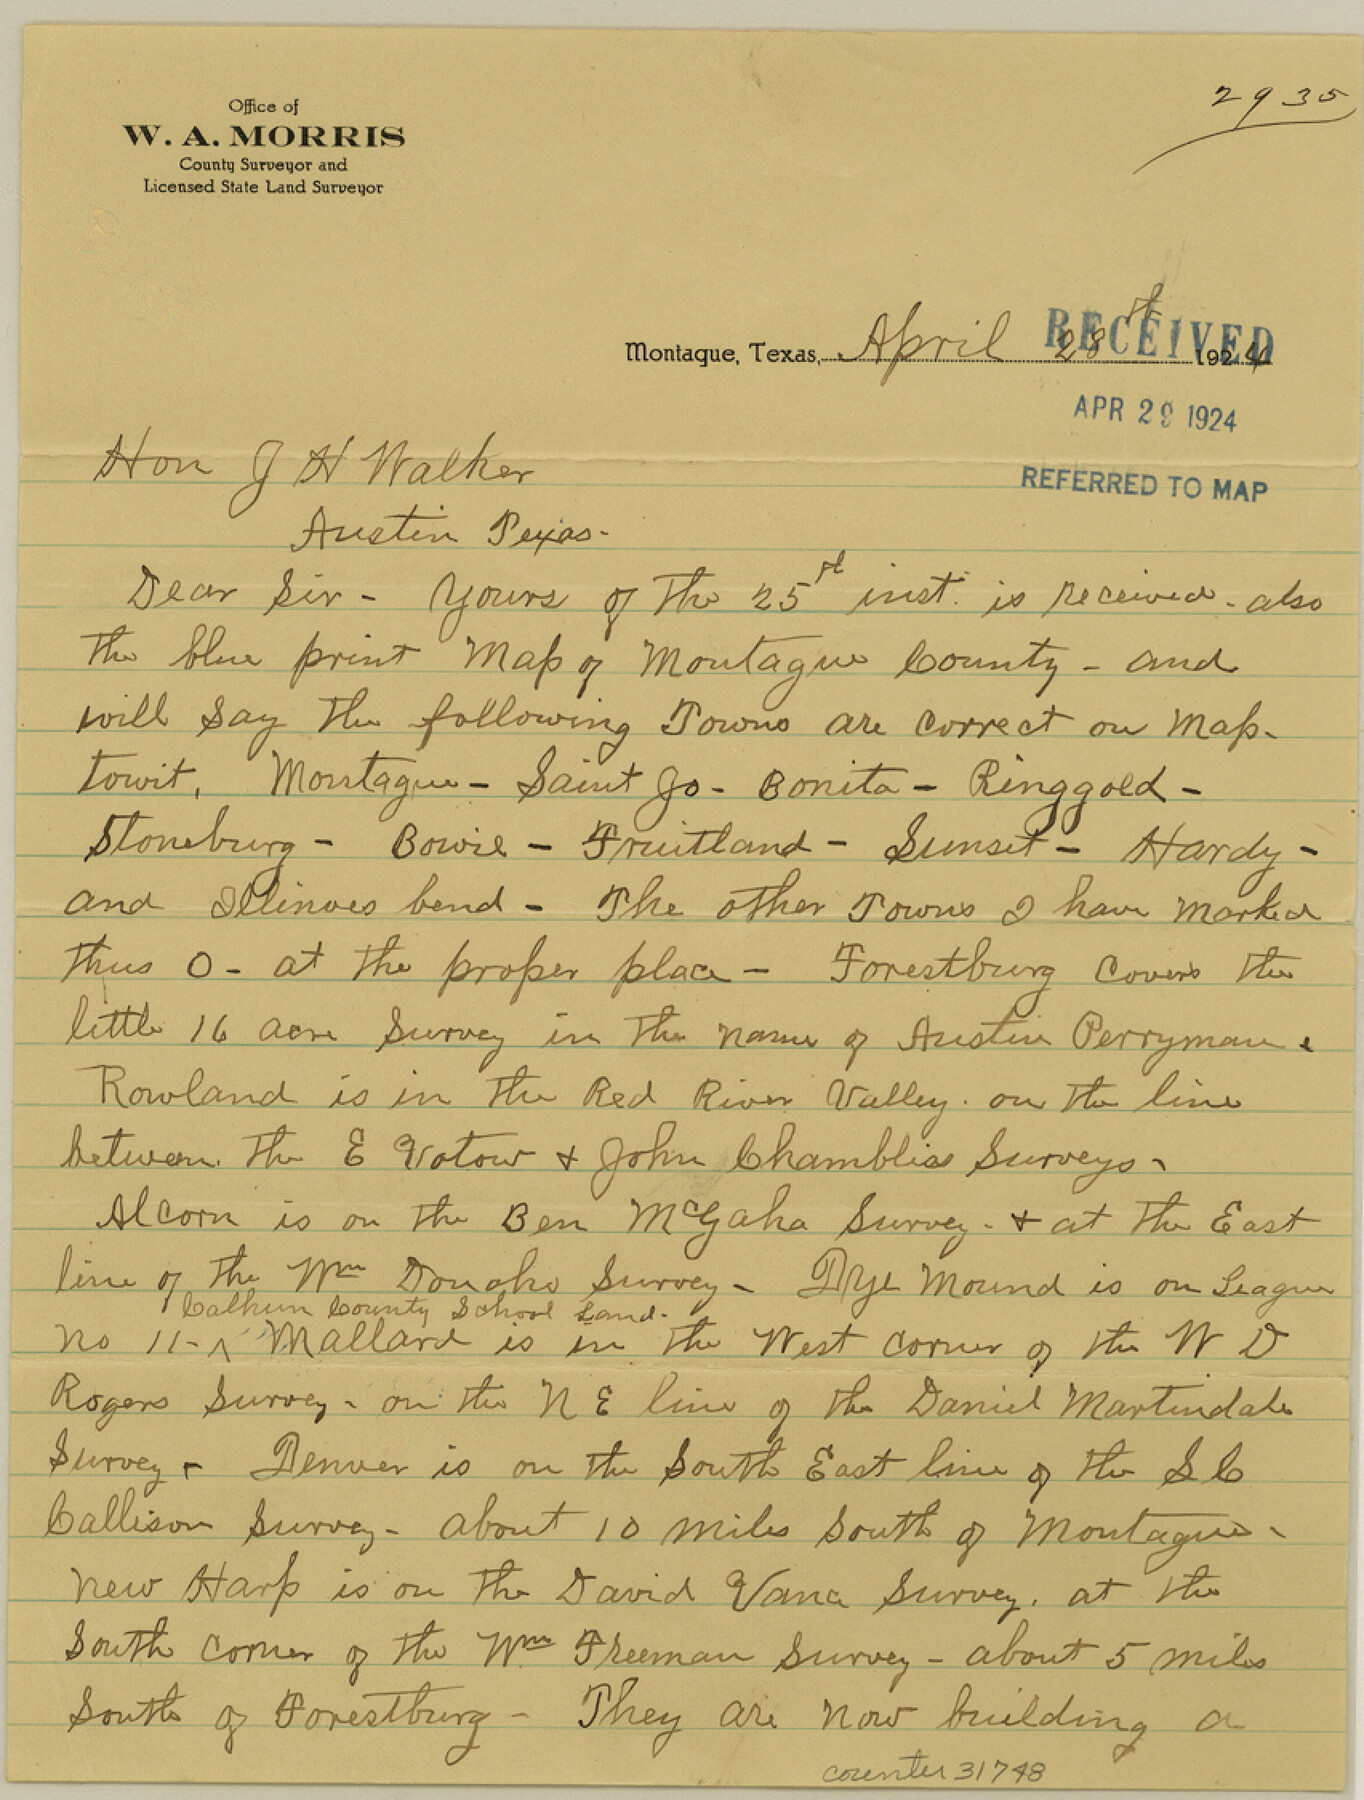 2935
Office of
W. A. MORRIS
County Surveyor and
Licensed State Land Surveyor
Montague, Texas, April 28th 1924
RECEIVED
APR 29 1924
REFERRED TO MAP
Hon J H Walker
Austin Texas-
Dear Sir - Yours of the 25th inst. is received - also
the blue print Map of Montague County - and
will say the following Towns are correct on Map-
towit, Montague - Saint Jo - Bonita - Ringgold -
Stoneburg - Bowie - Fruitland - Sunset - Hardy -
and Illinoes bend - The other Towns I have marked
thus O - at the proper place - Forestburg covers the
little 16 acre Survey in the name of Austin Perryman.
Rowland is in the Red River Valley. on the line
between the E Votow & John Chambliss Surveys -
Alcorn is on the Ben McGaha Survey - & at the East
line of the Wm Donoho Survey - Dye Mound is on League
Calhun County School Land -
no 11 - ^ Mallard is in the West corner of the W D
Rogers Survey - on the N E line of the Daniel Martindale
Survey - Denver is on the South East line of the S C
Callison Survey - about 10 miles South of Montague -
New Harp is on the David Vana Survey. at the
South corner of the Wm Freeman Survey - about 5 miles
South of Forestburg - They are now building a
counter 31748